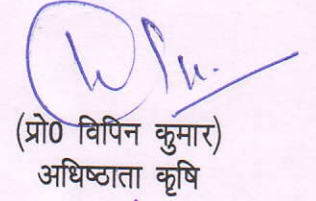 (प्रो0 विपिन कुमार)
अधिष्ठाता कृषि